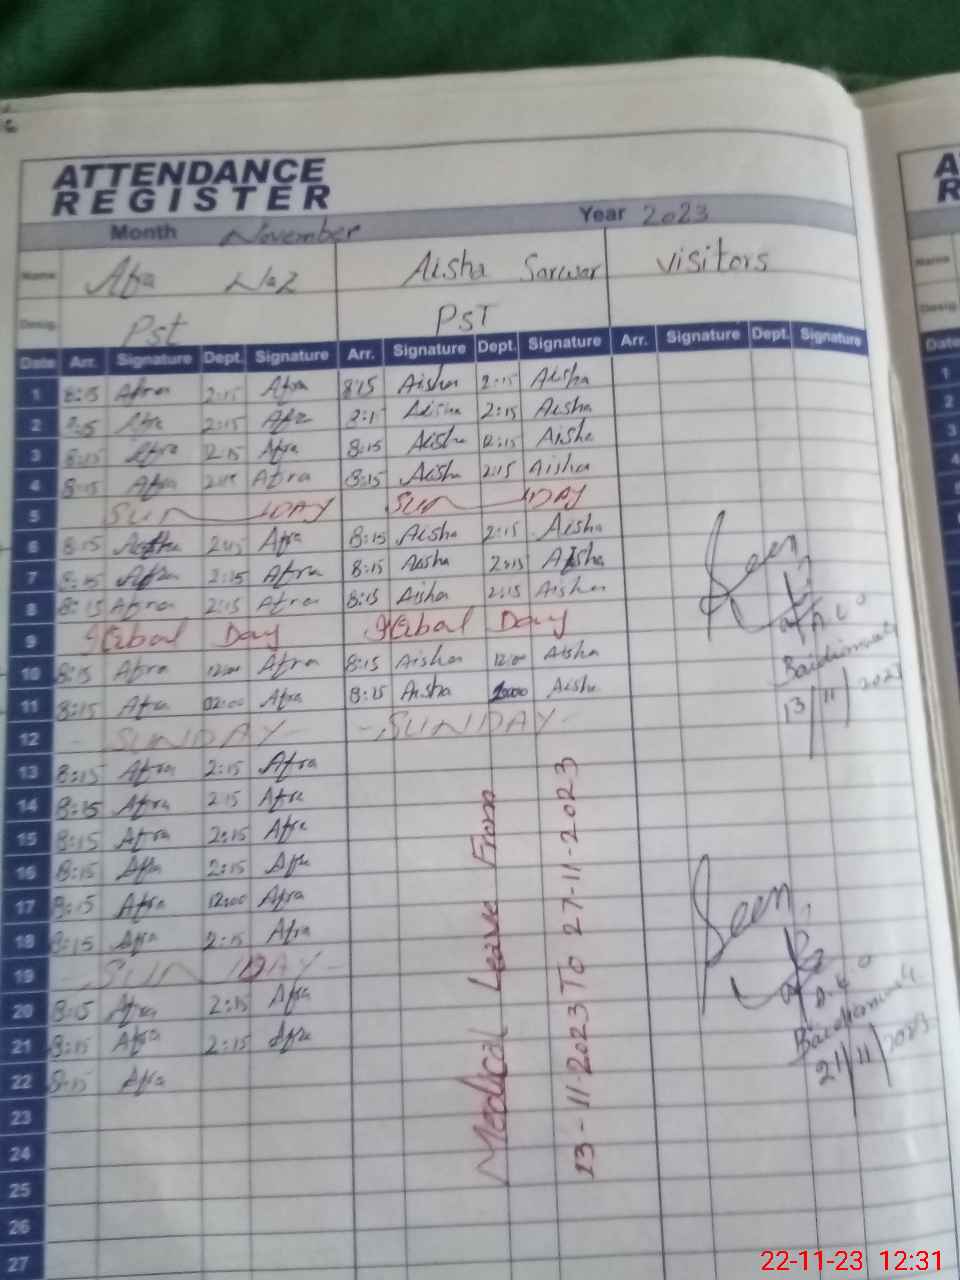 ATTENDANCE
REGISTER
Month November Year 2023
Name Afra Naz Aisha Sarwar visitors
Desig. Pst PST
Date Arr. Signature Dept. Signature Arr. Signature Dept. Signature Arr. Signature Dept. Signature
1 8:15 Afra 2:15 Afra 8:15 Aisha 2:15 Aisha
2 8:15 Afra 2:15 Afra 8:15 Aisha 2:15 Aisha
3 8:15 Afra 12:15 Afra 8:15 Aisha 12:15 Aisha
4 8:15 Afra 2:15 Afra 8:15 Aisha 2:15 Aisha
5 SUNDAY SUNDAY
6 8:15 2:15 Afra 8:15 Aisha 2:15 Aisha
7 8:15 Afra 2:15 Afra 8:15 Aisha 2:15 Aisha
8 8:15 Afra 2:15 Afra 8:15 Aisha 2:15 Aisha
9 Iqbal Day Iqbal Day
10 8:15 Afra 12:00 Afra 8:15 Aisha 12:00 Aisha
11 8:15 Afra 02:00 Afra 8:15 Aisha Aisha
12 - SUNDAY - - SUNDAY -
13 8:15 Afra 2:15 Afra
14 8:15 Afra 2:15 Afra
15 8:15 Afra 2:15 Afra
16 8:15 Afra 2:15 Afra
17 8:15 Afra 12:00 Afra
18 8:15 Afra 2:15 Afra
19 - SUNDAY -
20 8:15 Afra 2:15 Afra
21 8:15 Afra 2:15 Afra
22 8:15 Afra
23
24
25
26
27
Medical Leave From
13-11-2023 To 27-11-2023
Seen
13/11/2023
Seen
21/11/2023
Name
Desig.
Date
1
2
3
4
22-11-23 12:31